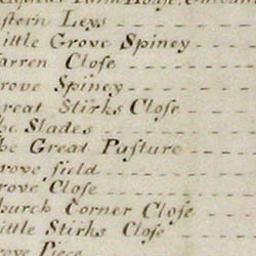 stern Leys
ittle Grove Spiney
arren Close
rove Spiney
reat Stirks Close
he Slades
he Great Pasture
rove field
rove Close
hurch Corner Close
ittle Stirks Close
rove Piece